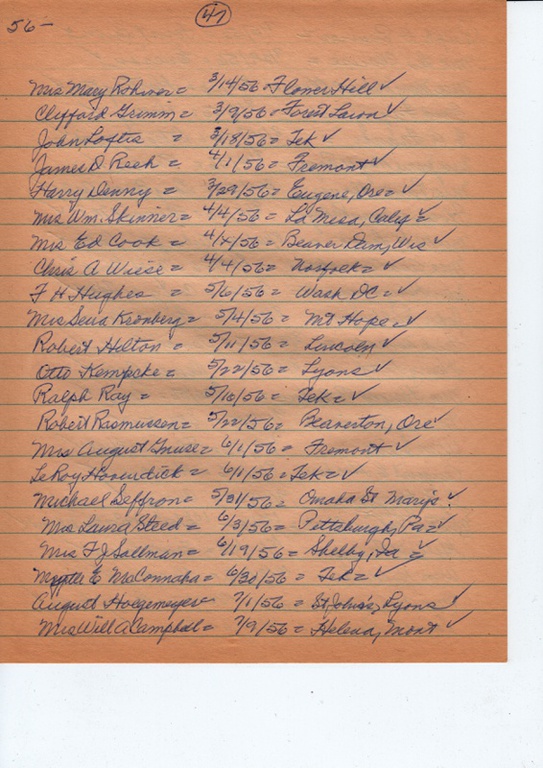 56-
47
Mrs Macy Rohwer = 3/14/56 = Flower Hill ✓
Clifford Grimm = 3/9/56 = Forest Lawn ✓
John Loftis = 3/18/56 = Tek ✓
James D Resh = 4/1/56 = Fremont ✓
Harry Denny = 3/29/56 = Eugene, Ore = ✓
Mrs Wm. Skinner = 4/4/56 = La Mesa, Calif = ✓
Mrs Ed Cook = 4/7/56 = Beaver Dam, Wis ✓
Chris A Wiese = 4/4/56 = Norfolk = ✓
F H Hughes = 5/6/56 = Wash DC = ✓
Mrs Kronberg = 5/4/56 = Mt Hope ✓
Robert Hilton = 5/11/56 = Lincoln ✓
Otto Kempcke = 5/22/56 = Lyons ✓
Ralph Ray = 5/16/56 = Tek = ✓
Robert Rasmussen = 5/22/56 = Beaverton, Ore ✓
Mrs August = 6/1/56 = Fremont ✓
LeRoy = 6/1/56 = Tek = ✓
Michael Seffron = 5/31/56 = Omaha St Mary's ✓
Mrs Laura Steed = 6/3/56 = Pittsburgh, Pa = ✓
Mrs F J Sallman = 6/19/56 = Shelby, Ia = ✓
Myrtle E McConnaha = 6/30/56 = Tek = ✓
August Hoegemeyer 7/1/56 = St John's, Lyons ✓
Mrs Will A Campbell = 7/9/56 = Helena, Mont ✓